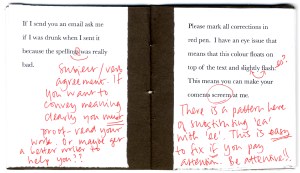 If I send you an email ask me
if I was drunk when I sent it
because the spelling was really
bad.
Subject/verb
agreement. If
you want to
convey meaning
clearly you must
proof-read your
work. Or maybe get
a better writer to
help you??
Please mark all corrections in
red pen. I have an eye issue that
means that this colour floats on
top of the text and slightly flash.
es?
This means you can make your
at me.
There is a pattern here
of substituting 'ea'
with 'ee'. This is easy
to fix if you pay
attention. Be attentive!!